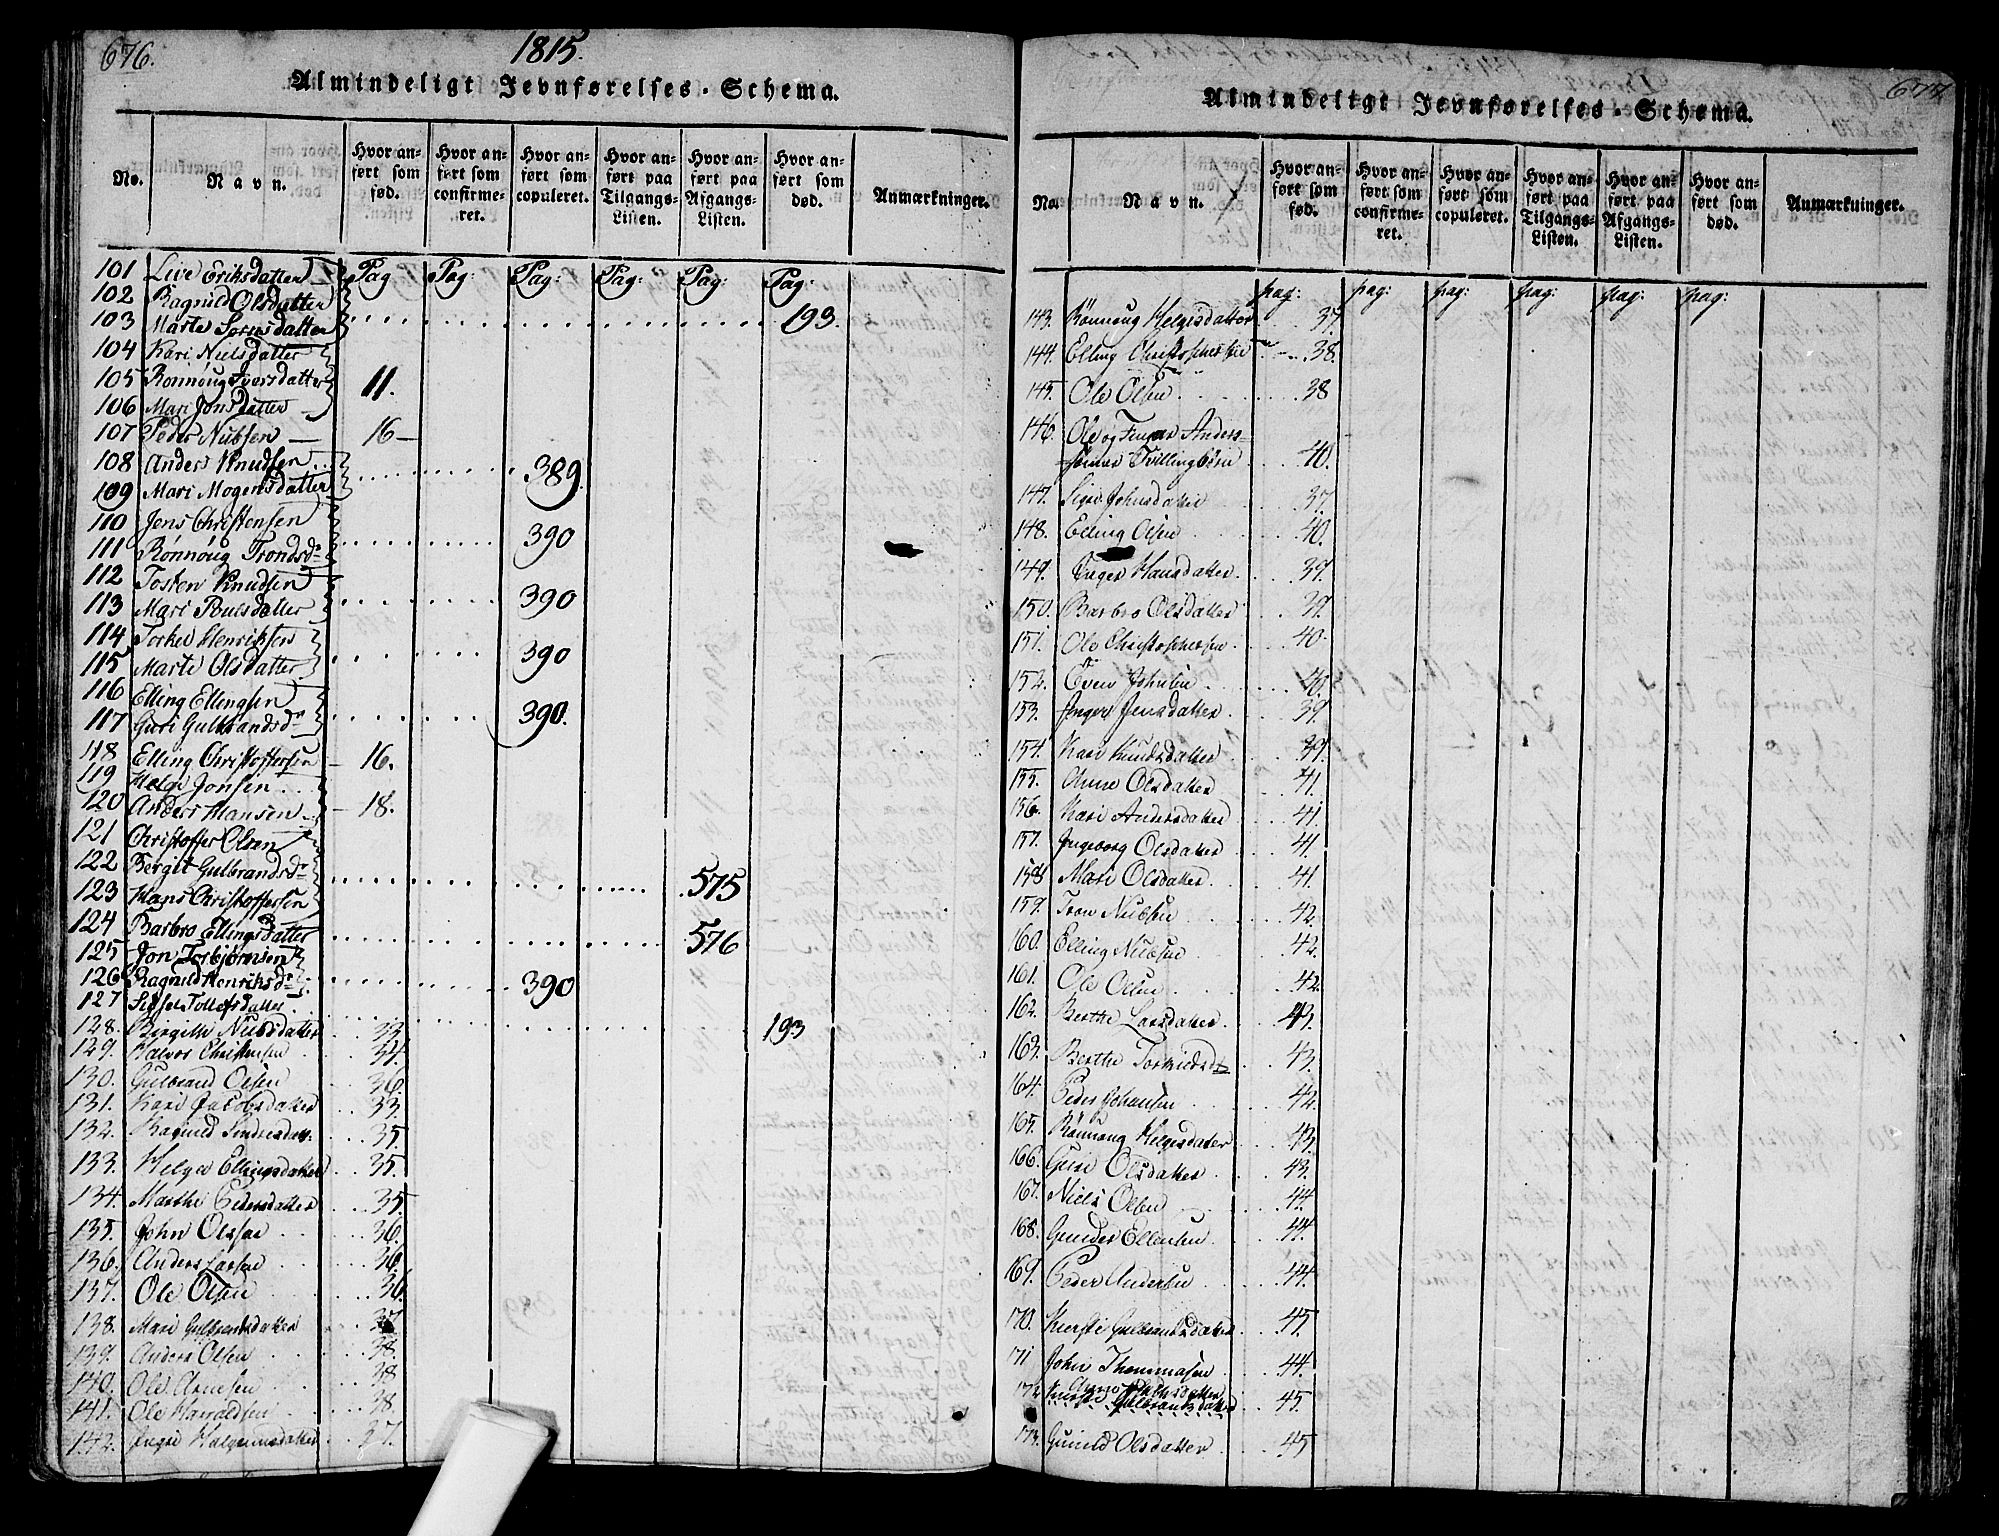 676.
1815.
Almindeligt Jevnførelses-Schema.
No.
Navn.
Hvor anført som fød.
Hvor anført som confirmeret.
Hvor anført som copuleret.
Hvor anført paa Tilgangs-Listen.
Hvor anført paa Afgangs-Listen.
Hvor anført som død.
Anmærkninger.
Pag Pag: Pag: Pag: Pag: Pag:
101 Live Eriksdatter
102 Ragnild Olsdatter
103 Marte Sørensdatter 193.
104 Kari Nielsdatter
105 Rønnøug Iversdatter 11.
106 Mari Jonsdatter
107 Peder Nielsen 16
108 Anders Knudsen
109 Mari Mogensdatter 389.
110 Jens Christensen
111 Rønnøug Trondsdr 390
112 Tosten Knudsen
113 Mari Poulsdatter 390
114 Torkel Henriksen
115 Marte Olsdatter 390
116 Elling Ellengsen
117 Guri Gulbrandsdr 390.
118 Elling Christoffersen 16.
119 Helge Jonsen
120 Anders Hansen 18.
121 Christoffer Olsen
122 Bergit Gulbrandsdr
123 Hans Christoffersen 575
124 Barbro Ellingsdatter
125 Jon Torbjørnsen 576
126 Ragnild Henriksdr 390
127 Sidsel Tollefsdatter 193
128. Birgithe Nielsdatter 33
129. Halvor Christensen 34.
130. Gulbrand Olsen 36
131. Kari Jacobsdatter 33.
132. Ragnild 35.
133. Helga Ellingsdatter 35.
134. Marthe Pedersdatter 35
135. John Olssøn 36.
136. Anders Larsøn 36.
137. Ole Olsen 36
138. Mari Gulbrandsdatter 37
139. Anders Olsen 38.
140. Ole Arnesen 38
141. Ole Haraldsen 38.
142. Ingri Halgrimsdatter 37.
677
Almindeligt Jevnførelses-Schema.
No.
Navn.
Hvor anført som fød.
Hvor anført som confirmeret.
Hvor anført som copuleret.
Hvor anført paa Tilgangs-Listen.
Hvor anført paa Afgangs-Listen.
Hvor anført som død.
Anmærkninger.
pag: pag: pag: pag: pag: pag:
143. Rönnoug Helgesdatter 37
144. Elling Christophersen 38.
145. Ole Olsen 38
146. Ole og Anders-
sønner Tvillingbörn 40.
147. Sigri Johnsdatter 37.
148. Elling Olsen 40.
149. Inger Hansdatter 39.
150. Barbro Olsdatter 39.
151. Ole Christophersen 40.
152. Even Johnsen 40.
153. Inger Jensdatter 39.
154. Kari Knudsdatter 39.
155. Anne Olsdatter 41.
156. Kari Andersdatter 41.
157. Ingeborg Olsdatter 41.
158 Mari Olsdatter 41.
159. Tron Nielsen 42.
160. Elling Nielsen 42.
161. Ole Olsen 42.
162. Berthe Larsdatter 43.
163. Berthe 43.
164. Peder Johansen 42.
165. Rönnoug Helgesdatter 43.
166. Guri Olsdatter 43.
167. Niels Olsen 44.
168. Gunder Ellensen 44.
169. Peder Andersen 44.
170. Kiersti Gulbrandsdatter 45.
171 John Thommasen 44.
172 Kiersti Gulbrandsdatter 45.
173. Gunild Olsdatter 45